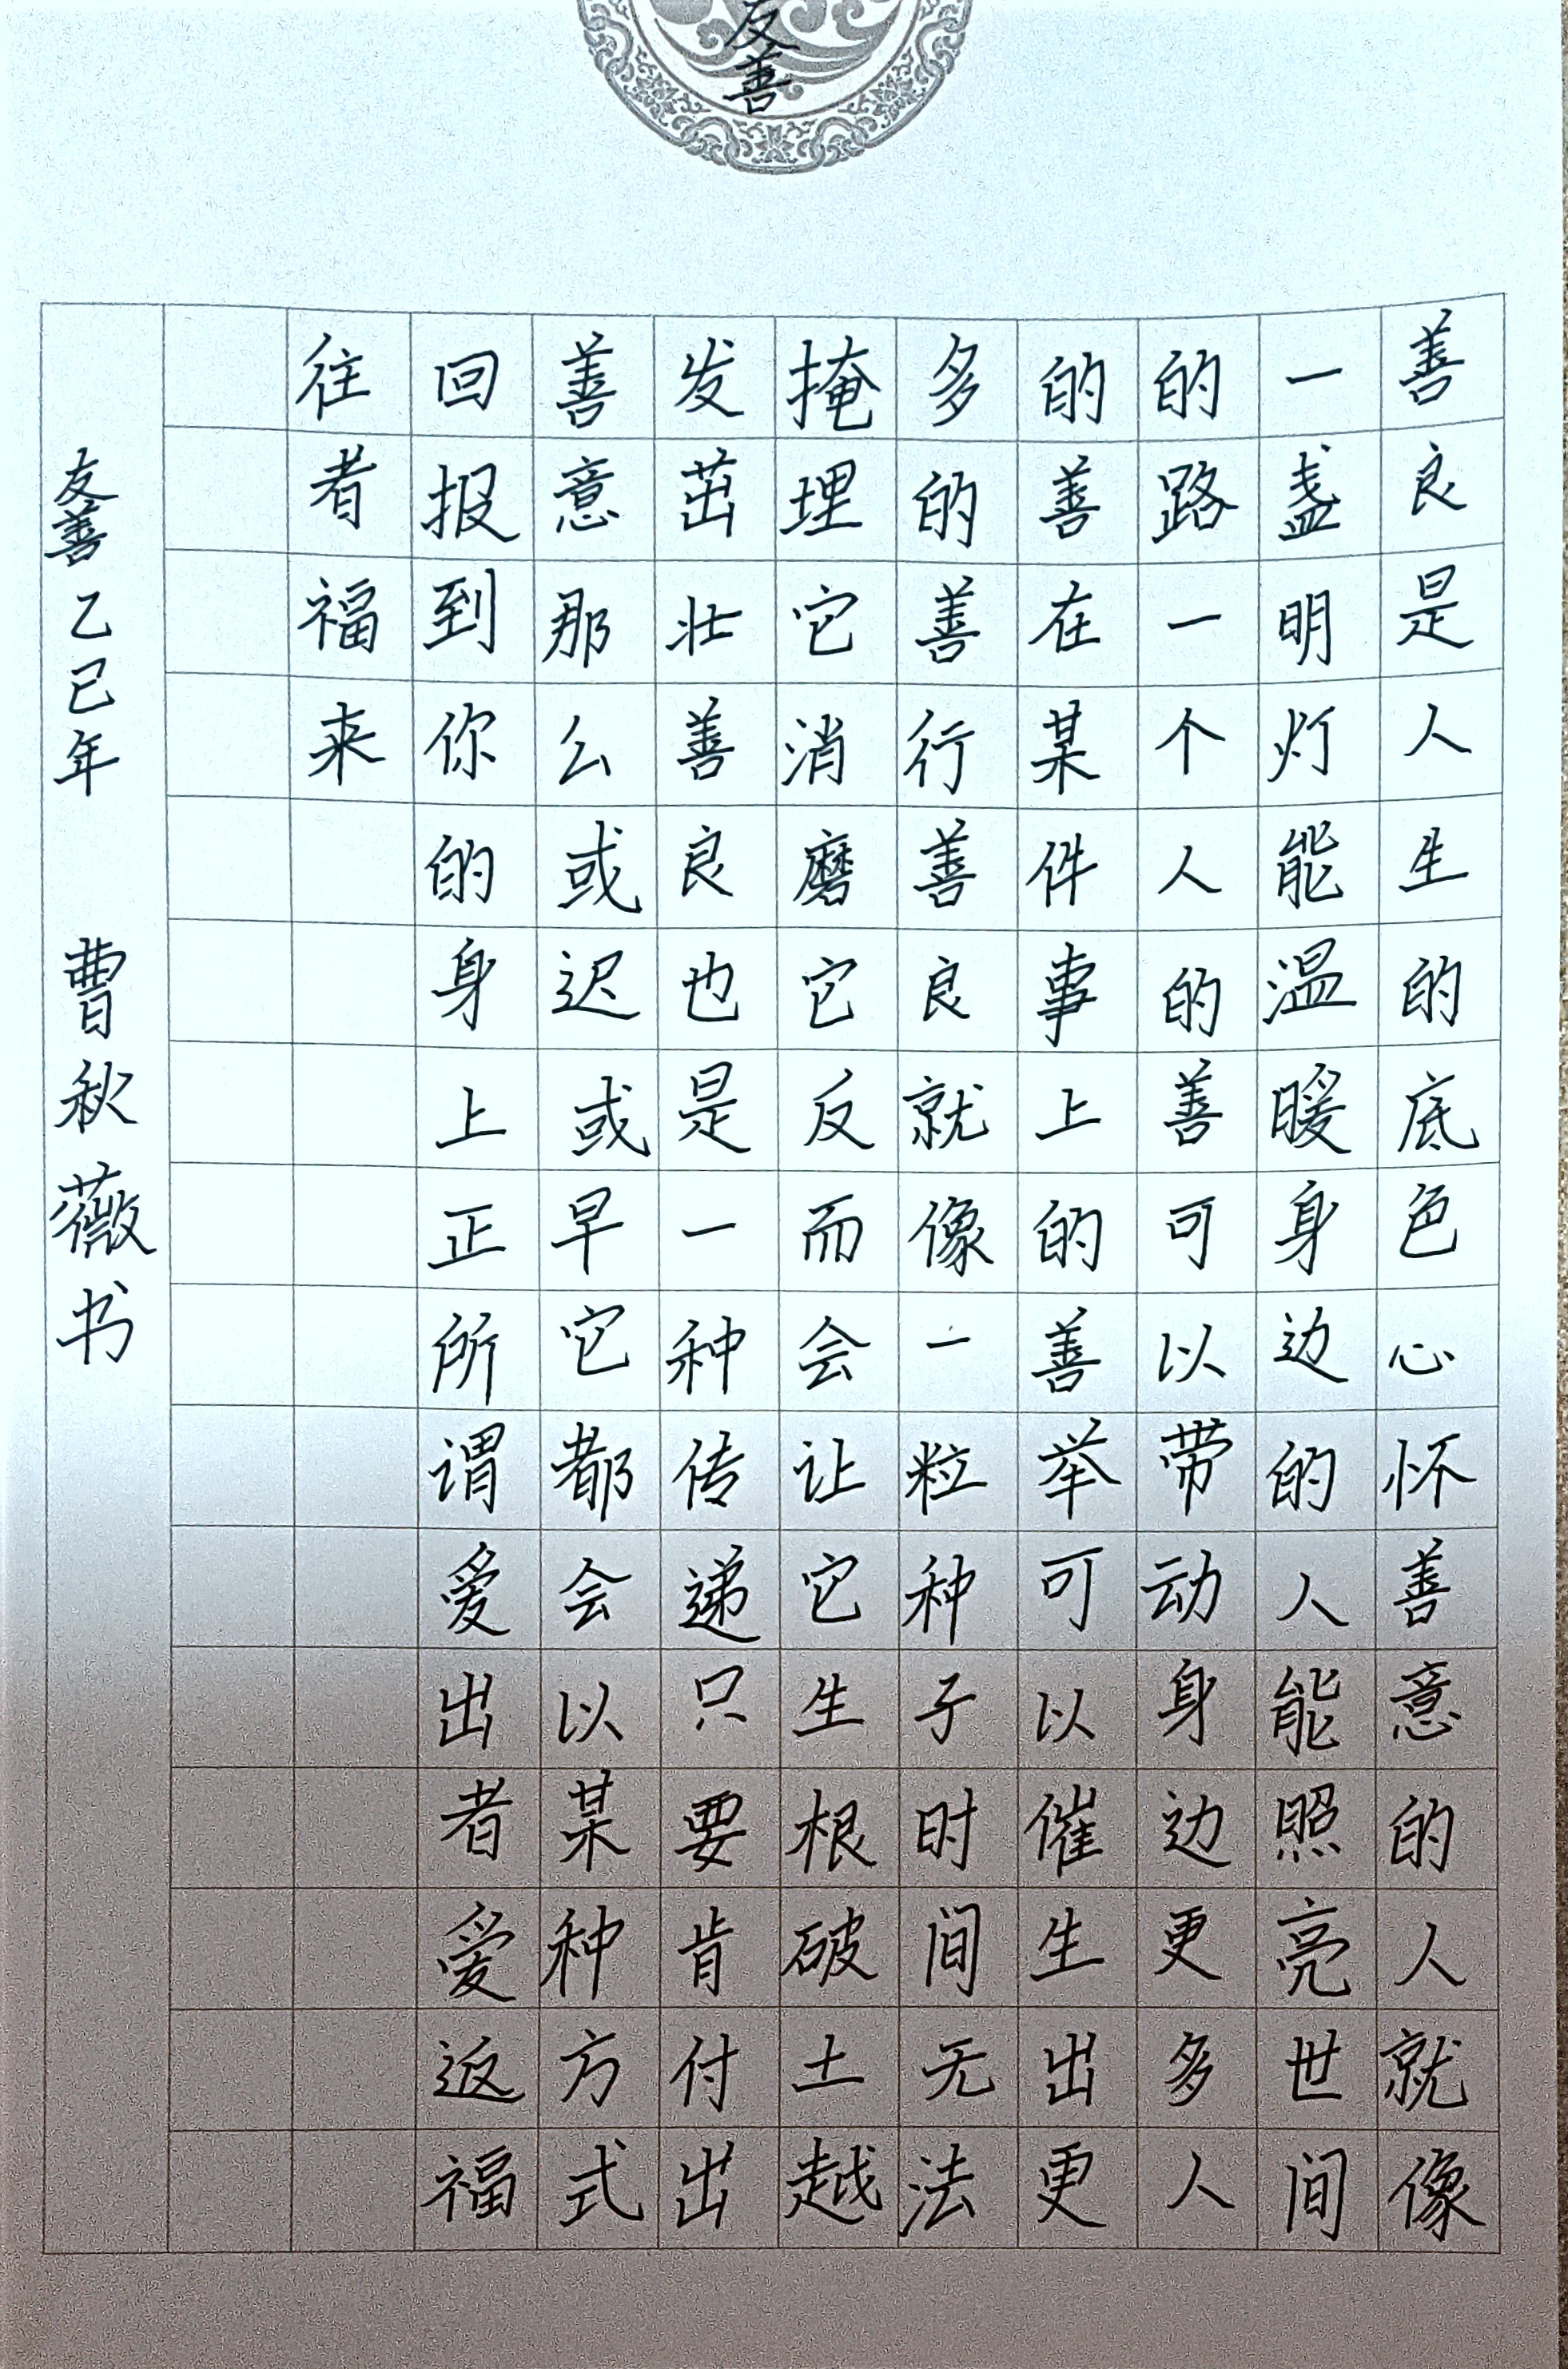 友善
善良是人生的底色心怀善意的人就像
一盏明灯能温暖身边的人能照亮世间
的路一个人的善可以带动身边更多人
的善在某件事上的善举可以催生出更
多的善行善良就像一粒种子时间无法
掩埋它消磨它反而会让它生根破土越
发茁壮善良也是一种传递只要肯付出
善意那么或迟或早它都会以某种方式
回报到你的身上正所谓爱出者爱返福
往者福来
友善乙巳年 曹秋薇书